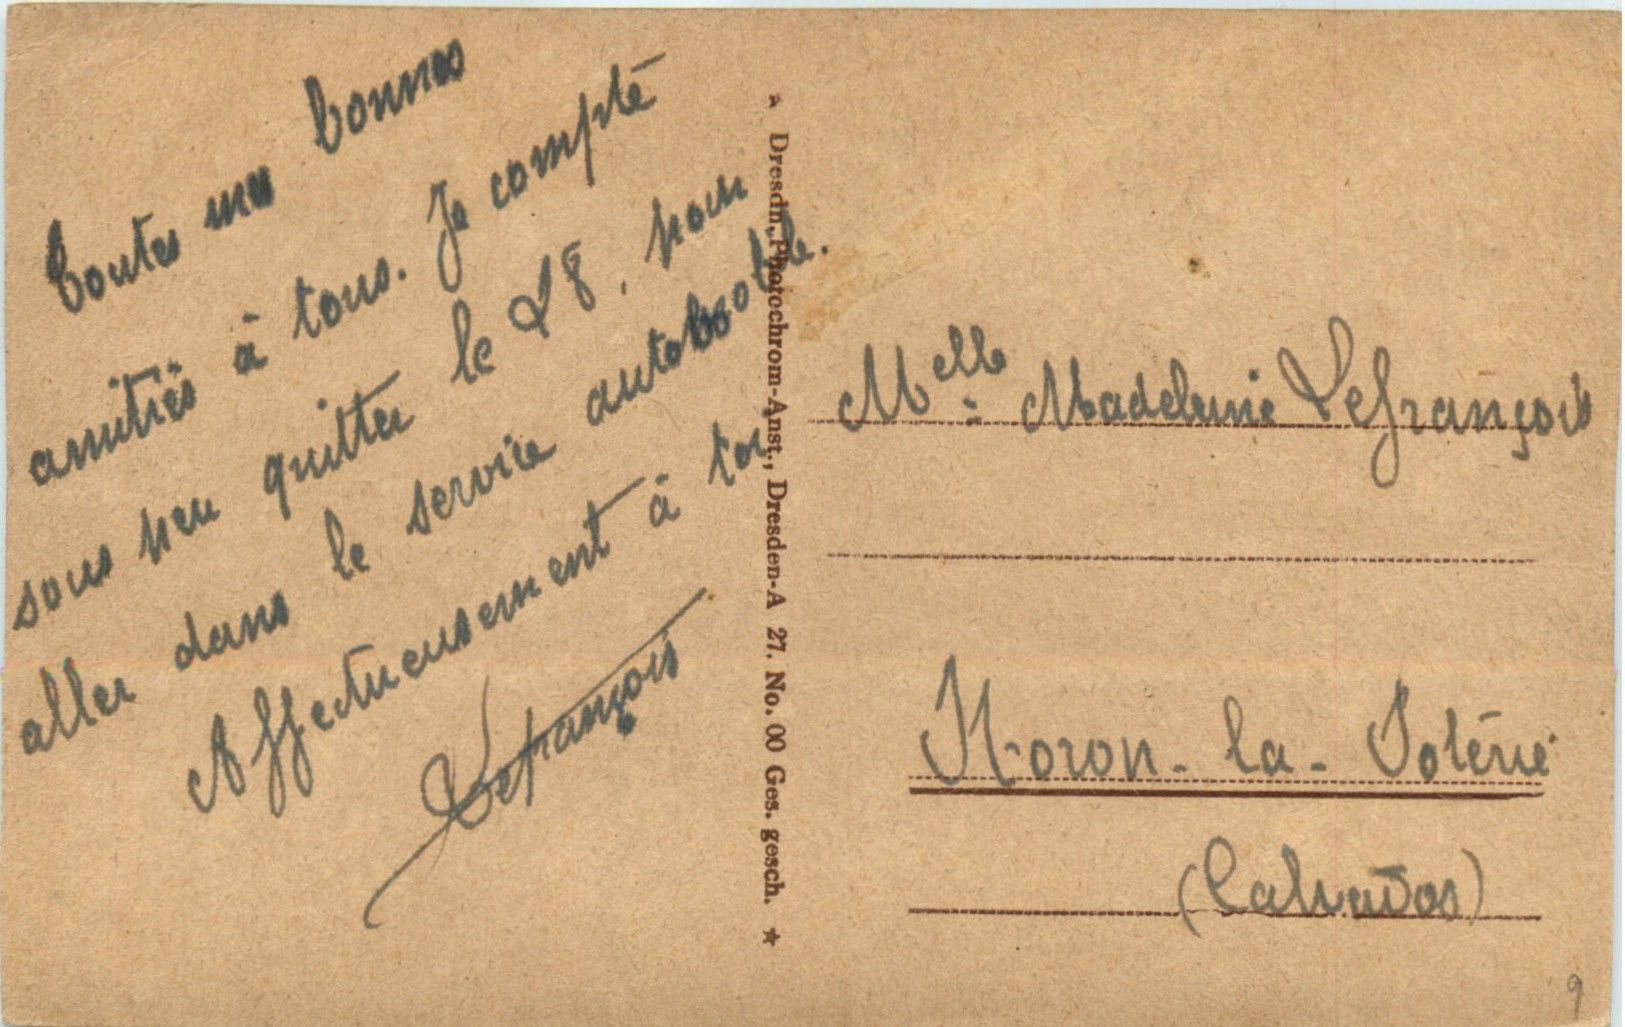 Toutes mes bonnes
amitiés à tous. Je compte
sous peu quitter le 28, pour
aller dans le service automobile.
Affectueusement à toi
Lefrançois
* Dresdn. Photochrom-Anst., Dresden-A 27. No. 00 Ges. gesch. *
Melle Madeleine Lefrançois
Noron-la-Poterie
(Calvados)
9